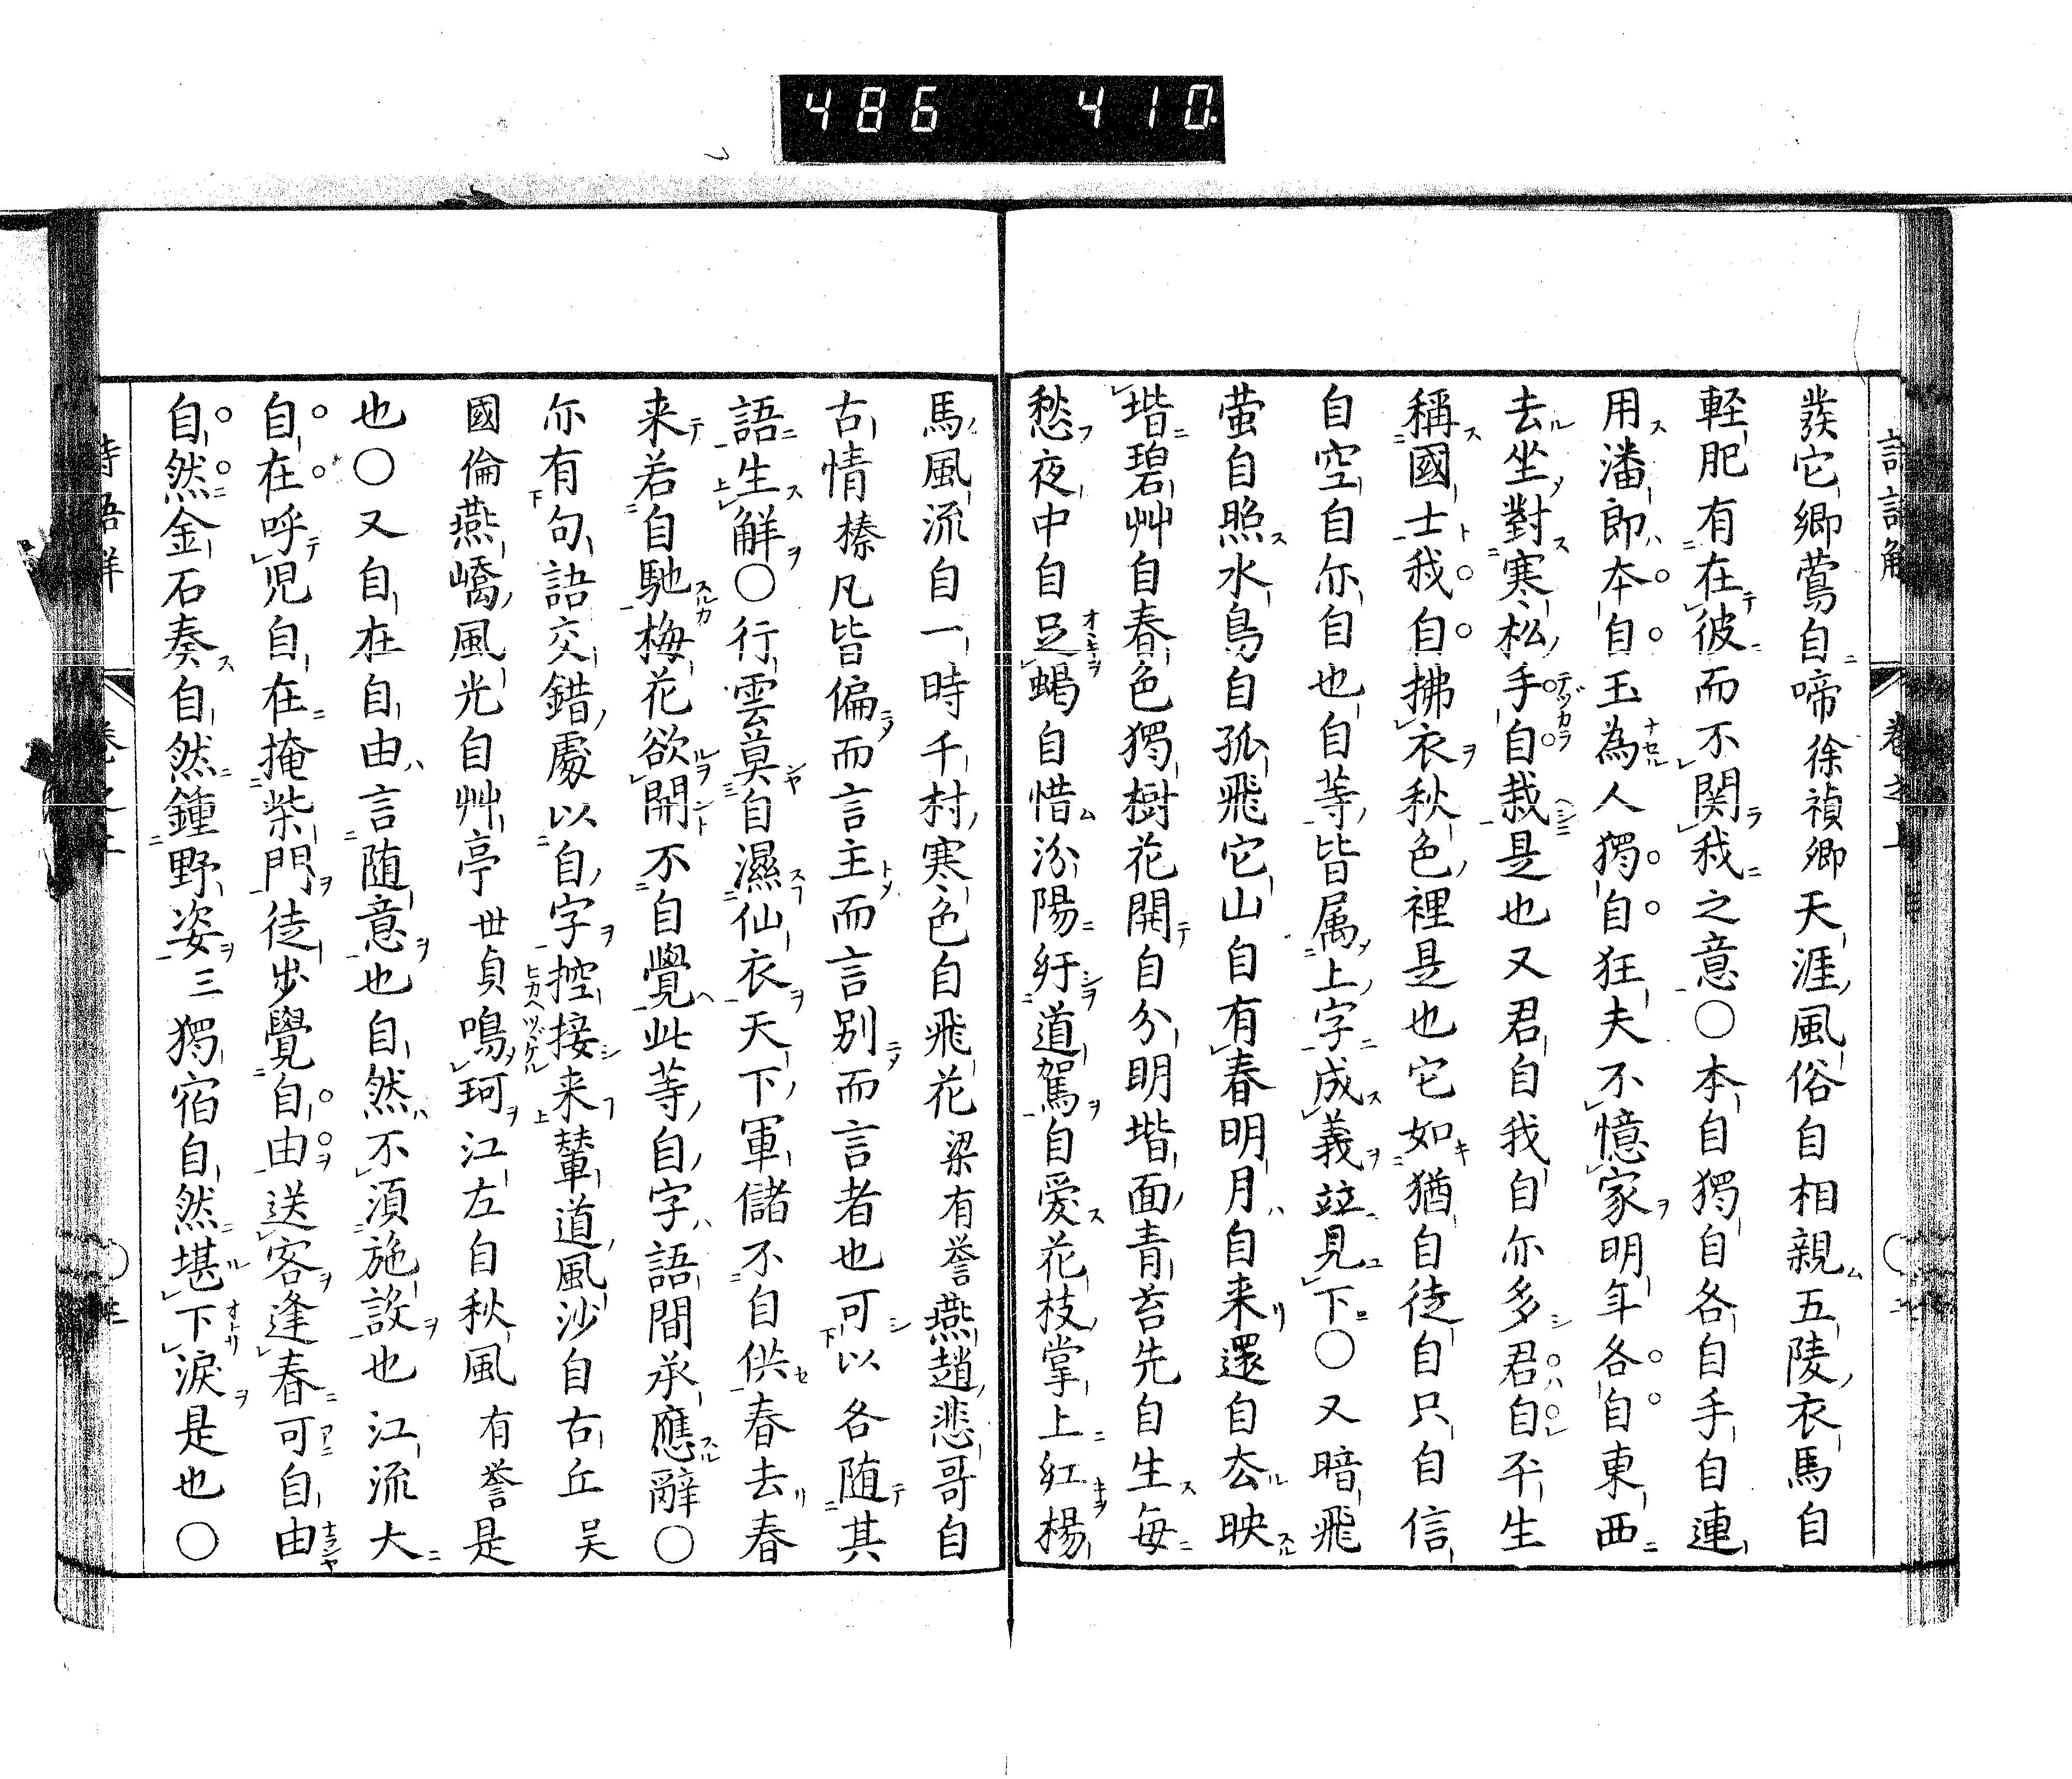 486 410
詩語解 卷之上
發它鄉鶯自啼徐禎卿天涯風俗自相親五陵衣馬自
輕肥有在彼而不関我之意〇本自獨自各自手自連
用潘郎本自玉為人獨自狂夫不憶家明年各自東西
去坐對寒松手自栽是也又君自我自亦多君自平生
稱國士我自拂衣秋色裡是也它如猶自徒自只自信
自空自亦自也自等皆属上字成義竝見下〇又暗飛
萤自照水鳥自孤飛它山自有春明月自来還自去映
堦碧艸自春色獨樹花開自分明堦面青苔先自生每
愁夜中自足蝎自惜汾陽紆道駕自愛花枝掌上紅楊
馬風流自一時千村寒色自飛花梁有誉燕趙悲哥自
古情榛凡皆偏而言主而言別而言者也可以各随其
語生解〇行雲莫自濕仙衣天下軍儲不自供春去春
来若自馳梅花欲開不自覺此等自字語間承應辭〇
亦有句語交錯處以自字控接来輦道風沙自古丘吴
國倫燕嶠風光自艸亭世貞鳴珂江左自秋風有誉是
也〇又自在自由言随意也自然不須施設也江流大
自在呼児自在掩柴門徒步覺自由送客逢春可自由
自然金石奏自然鍾野姿三獨宿自然堪下淚是也〇